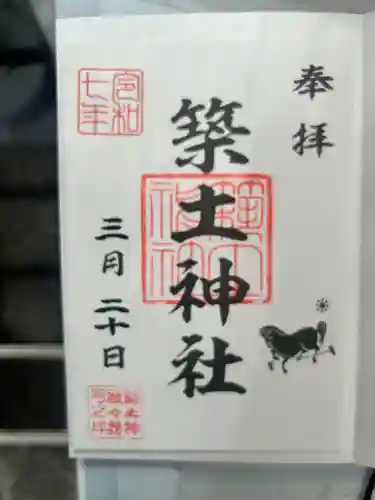 奉拝
築土神社
令和七年
三月二十日